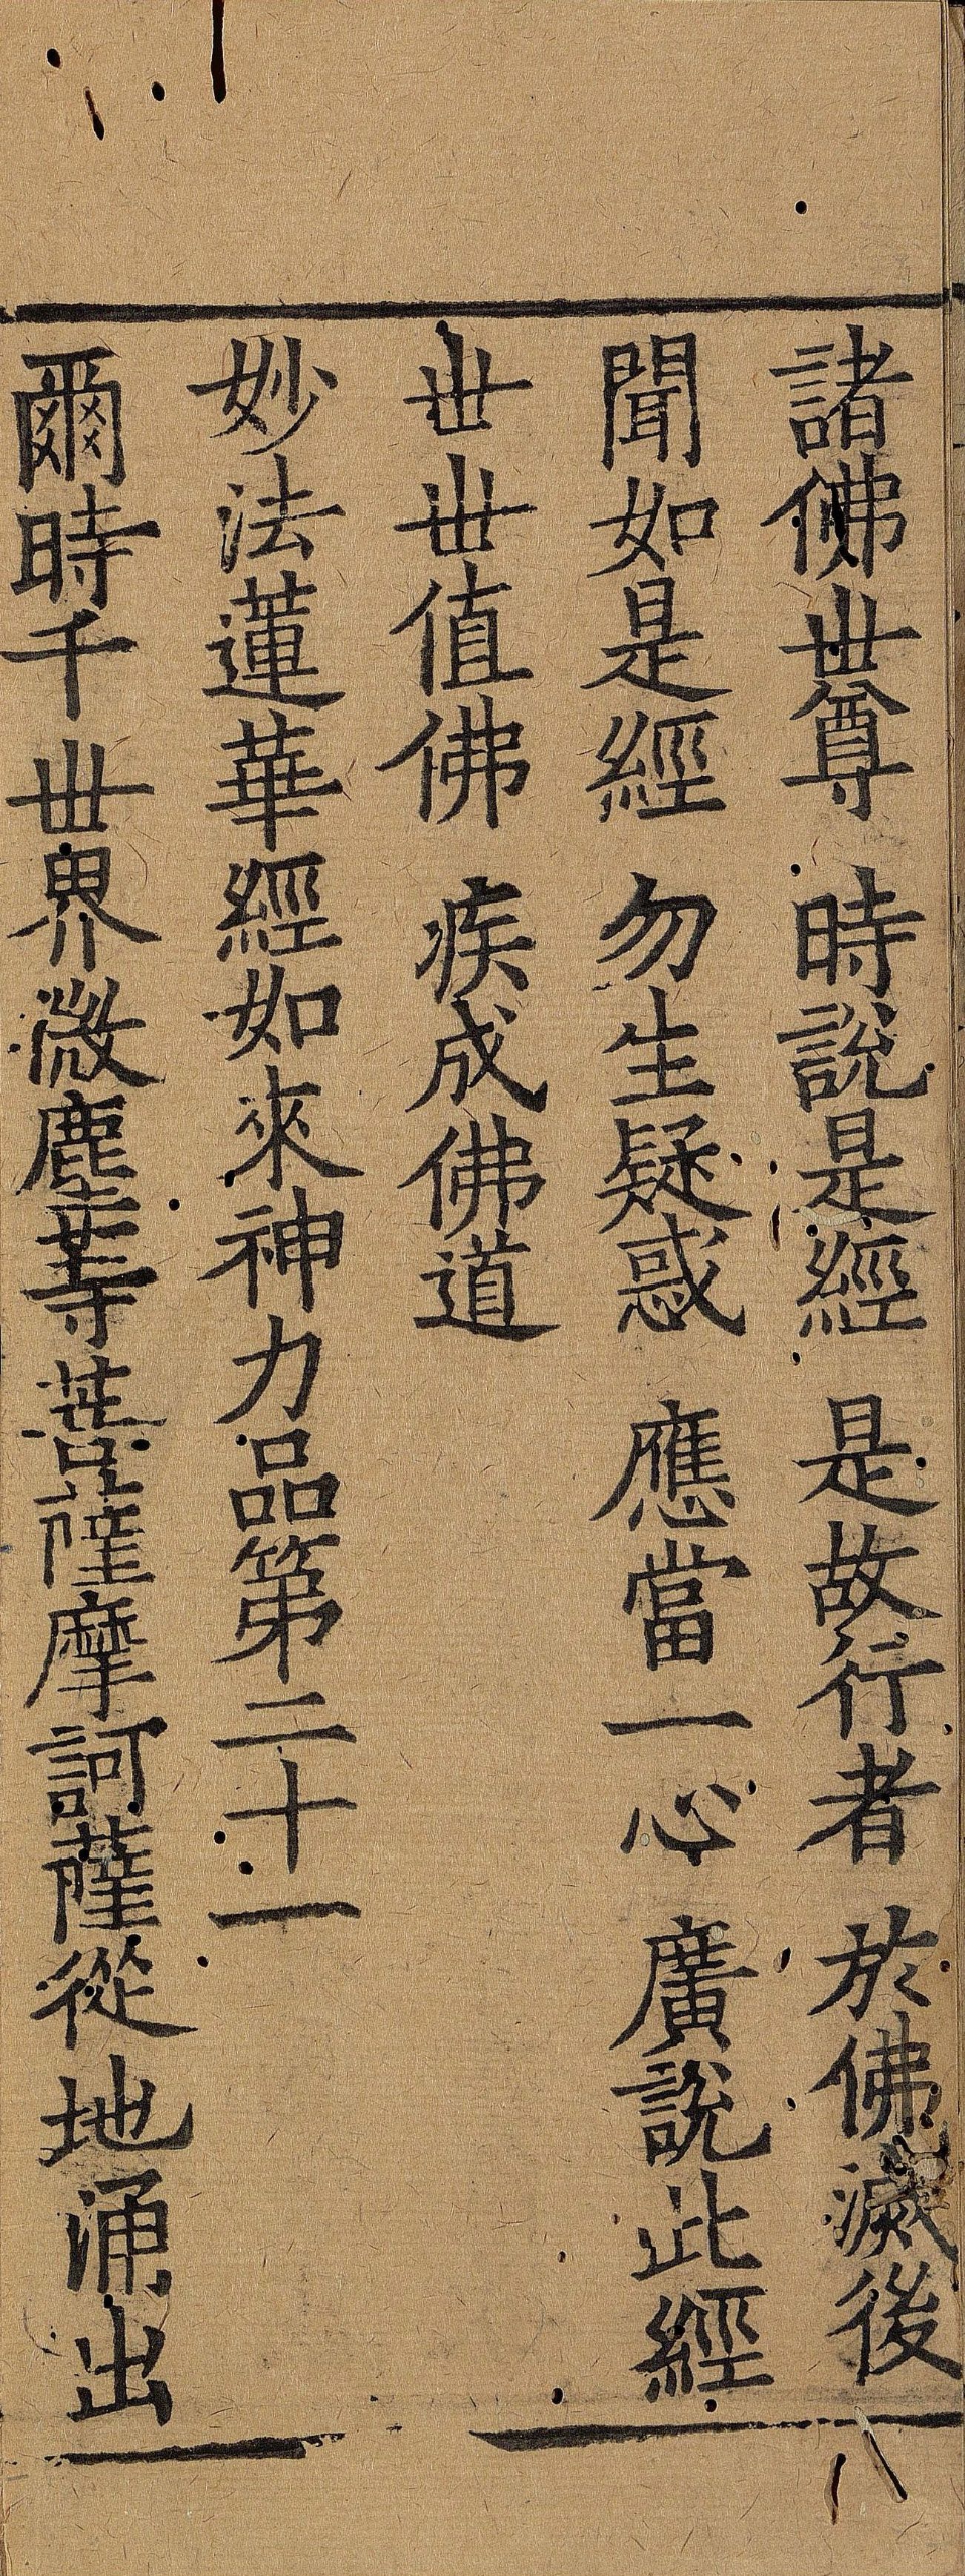 諸佛世尊　時說是經　是故行者　於佛滅後
聞如是經　勿生疑惑　應當一心　廣說此經
世世值佛　疾成佛道
妙法蓮華經如來神力品第二十一
爾時千世界微塵等菩薩摩訶薩從地涌出